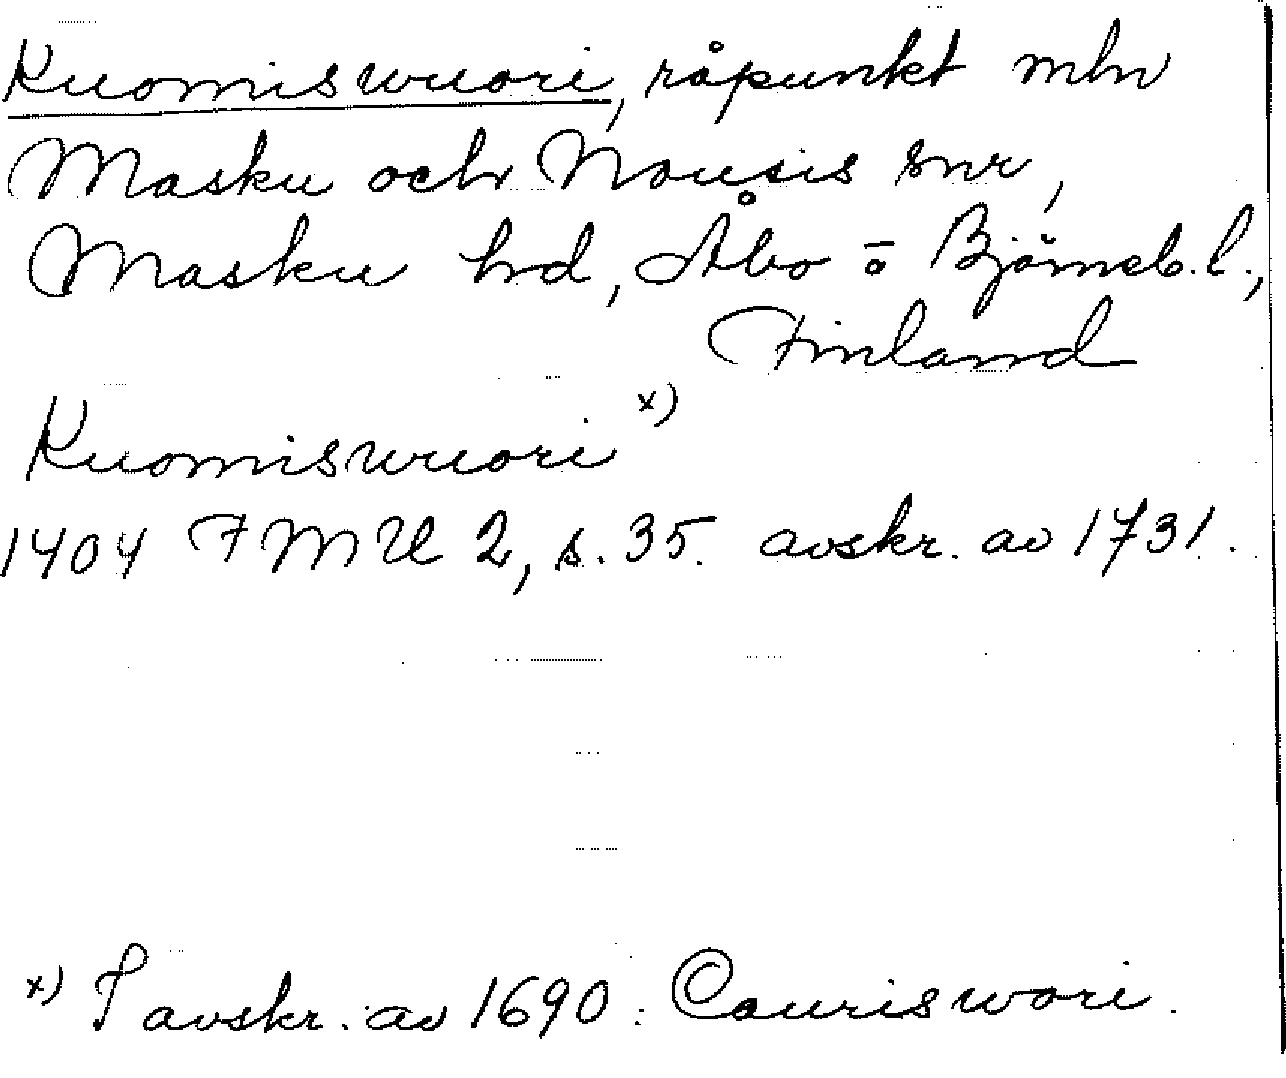 Kuomiswuori, råpunkt mln
Masku och Nousis snr,
Masku hd, Åbo o Björneb. l.,
Finland
Kuomiswuori x)
1404 FMU 2, s. 35. avskr. av 1731.
x) I avskr. av 1690: Couriswori.